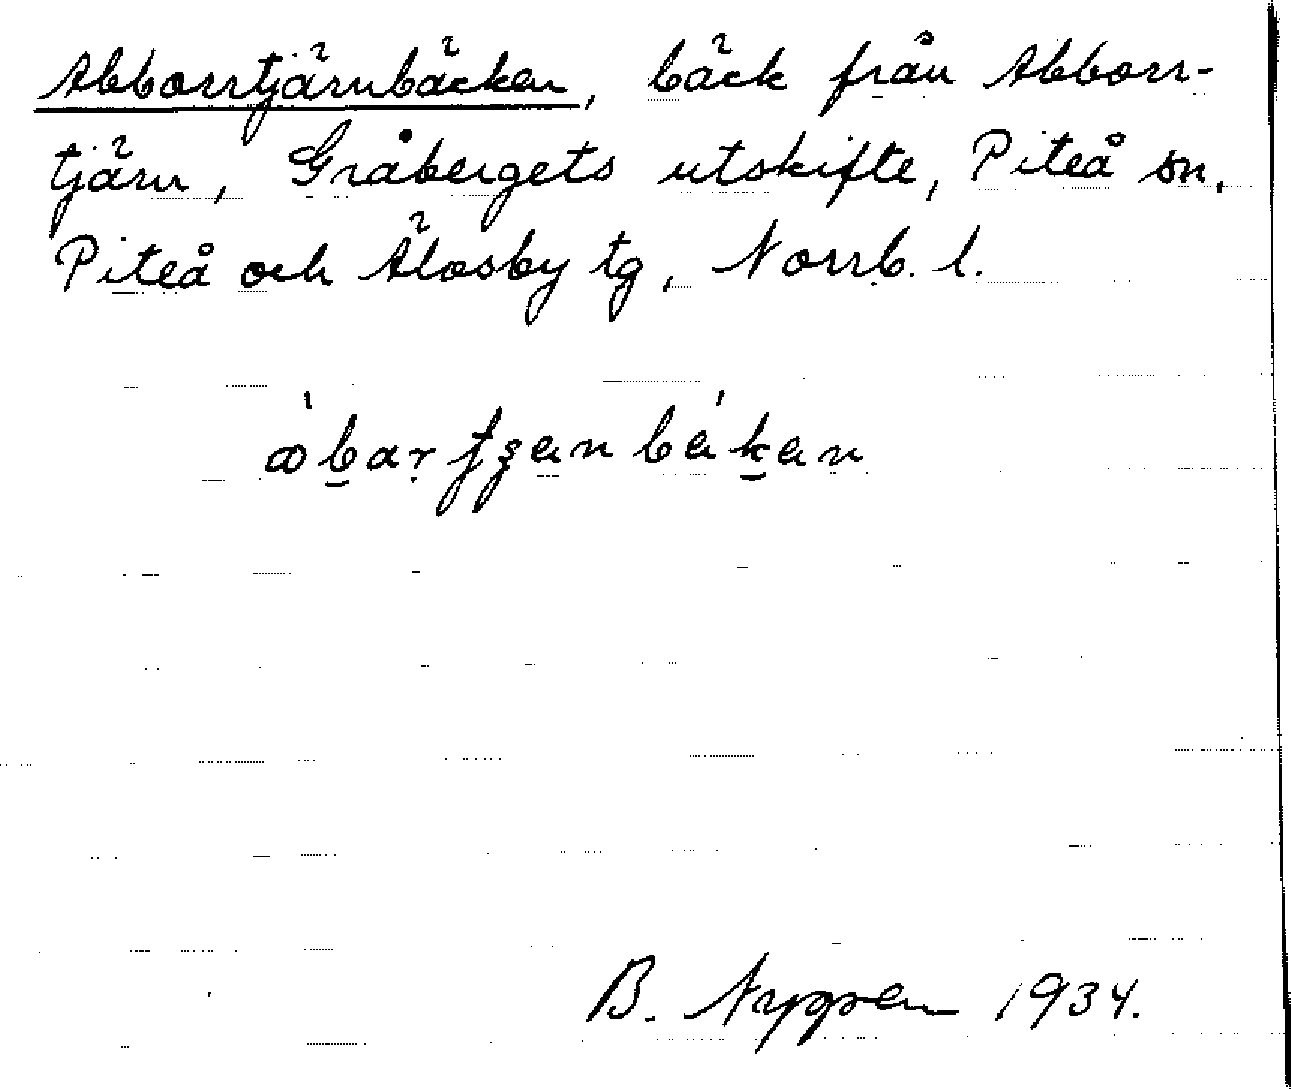 Abborrtjärnbäcken, bäck från Abborr-
tjärn, Gråbergets utskifte, Piteå sn,
Piteå och Älvsby tg, Norrb. l.
B. Nygren 1934.